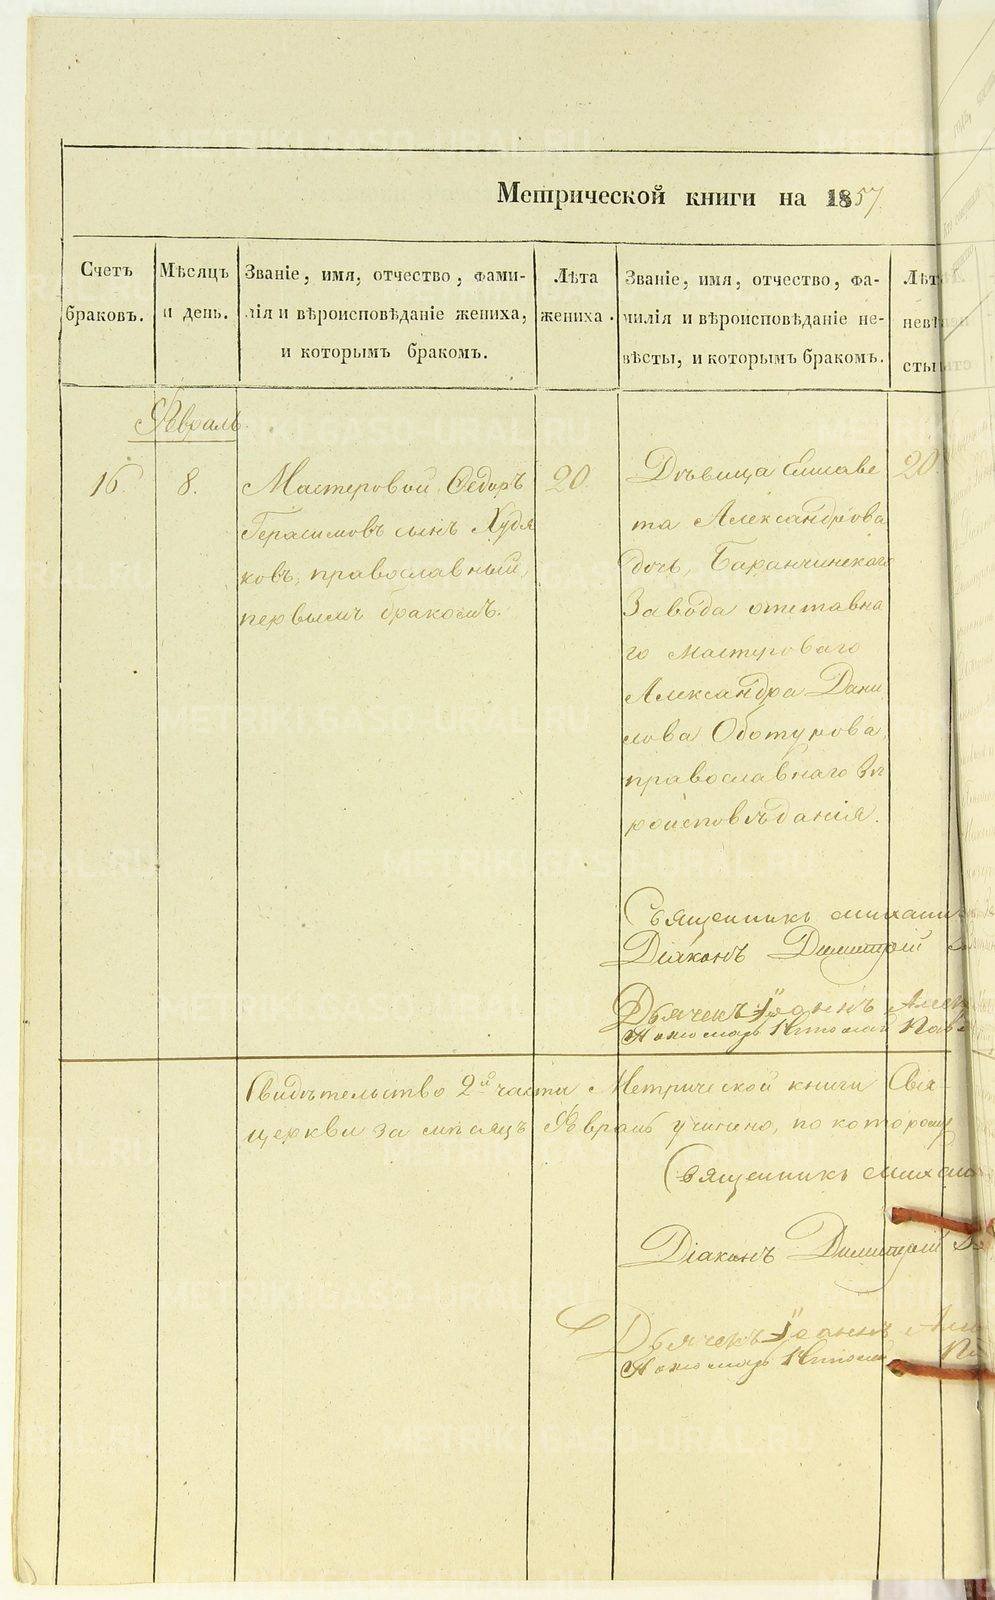 Метрической книги на 1857
Счетъ браковъ.
Мѣсяцъ и день.
Званіе, имя, отчество, фами-
лія и вѣроисповѣданіе жениха,
и которымъ бракомъ.
Лѣта
жениха.
Званіе, имя, отчество, фа-
милія и вѣроисповѣданіе не-
вѣсты, и которымъ бракомъ.
Лѣта
невѣ
сты
Февраль.
16.
8.
Мастеровой Ѳедоръ
Герасимовъ сынъ Худя
ковъ, православный,
первымъ бракомъ.
20
Дѣвица Елисаве
та Александрова
дочь, Баранчинскаго
Завода отставна
го Мастероваго
Александра Дани
лова Оботурова,
православнаго Вѣ
роисповѣданія.
20.
Священникъ Михаил
Діаконъ Димитрій
Дьячекъ Іоаннъ Алек
Пономарь Николай Пав
Свидѣтельство 2й части Метрической книги Свя-
церкви за мѣсяцъ Февраль учинено, по которому
Священникъ Михаи
Діаконъ Димитрій
Дьячекъ Іоаннъ Але
Пономарь Николай Па
METRIKI.GASO-URAL.RU